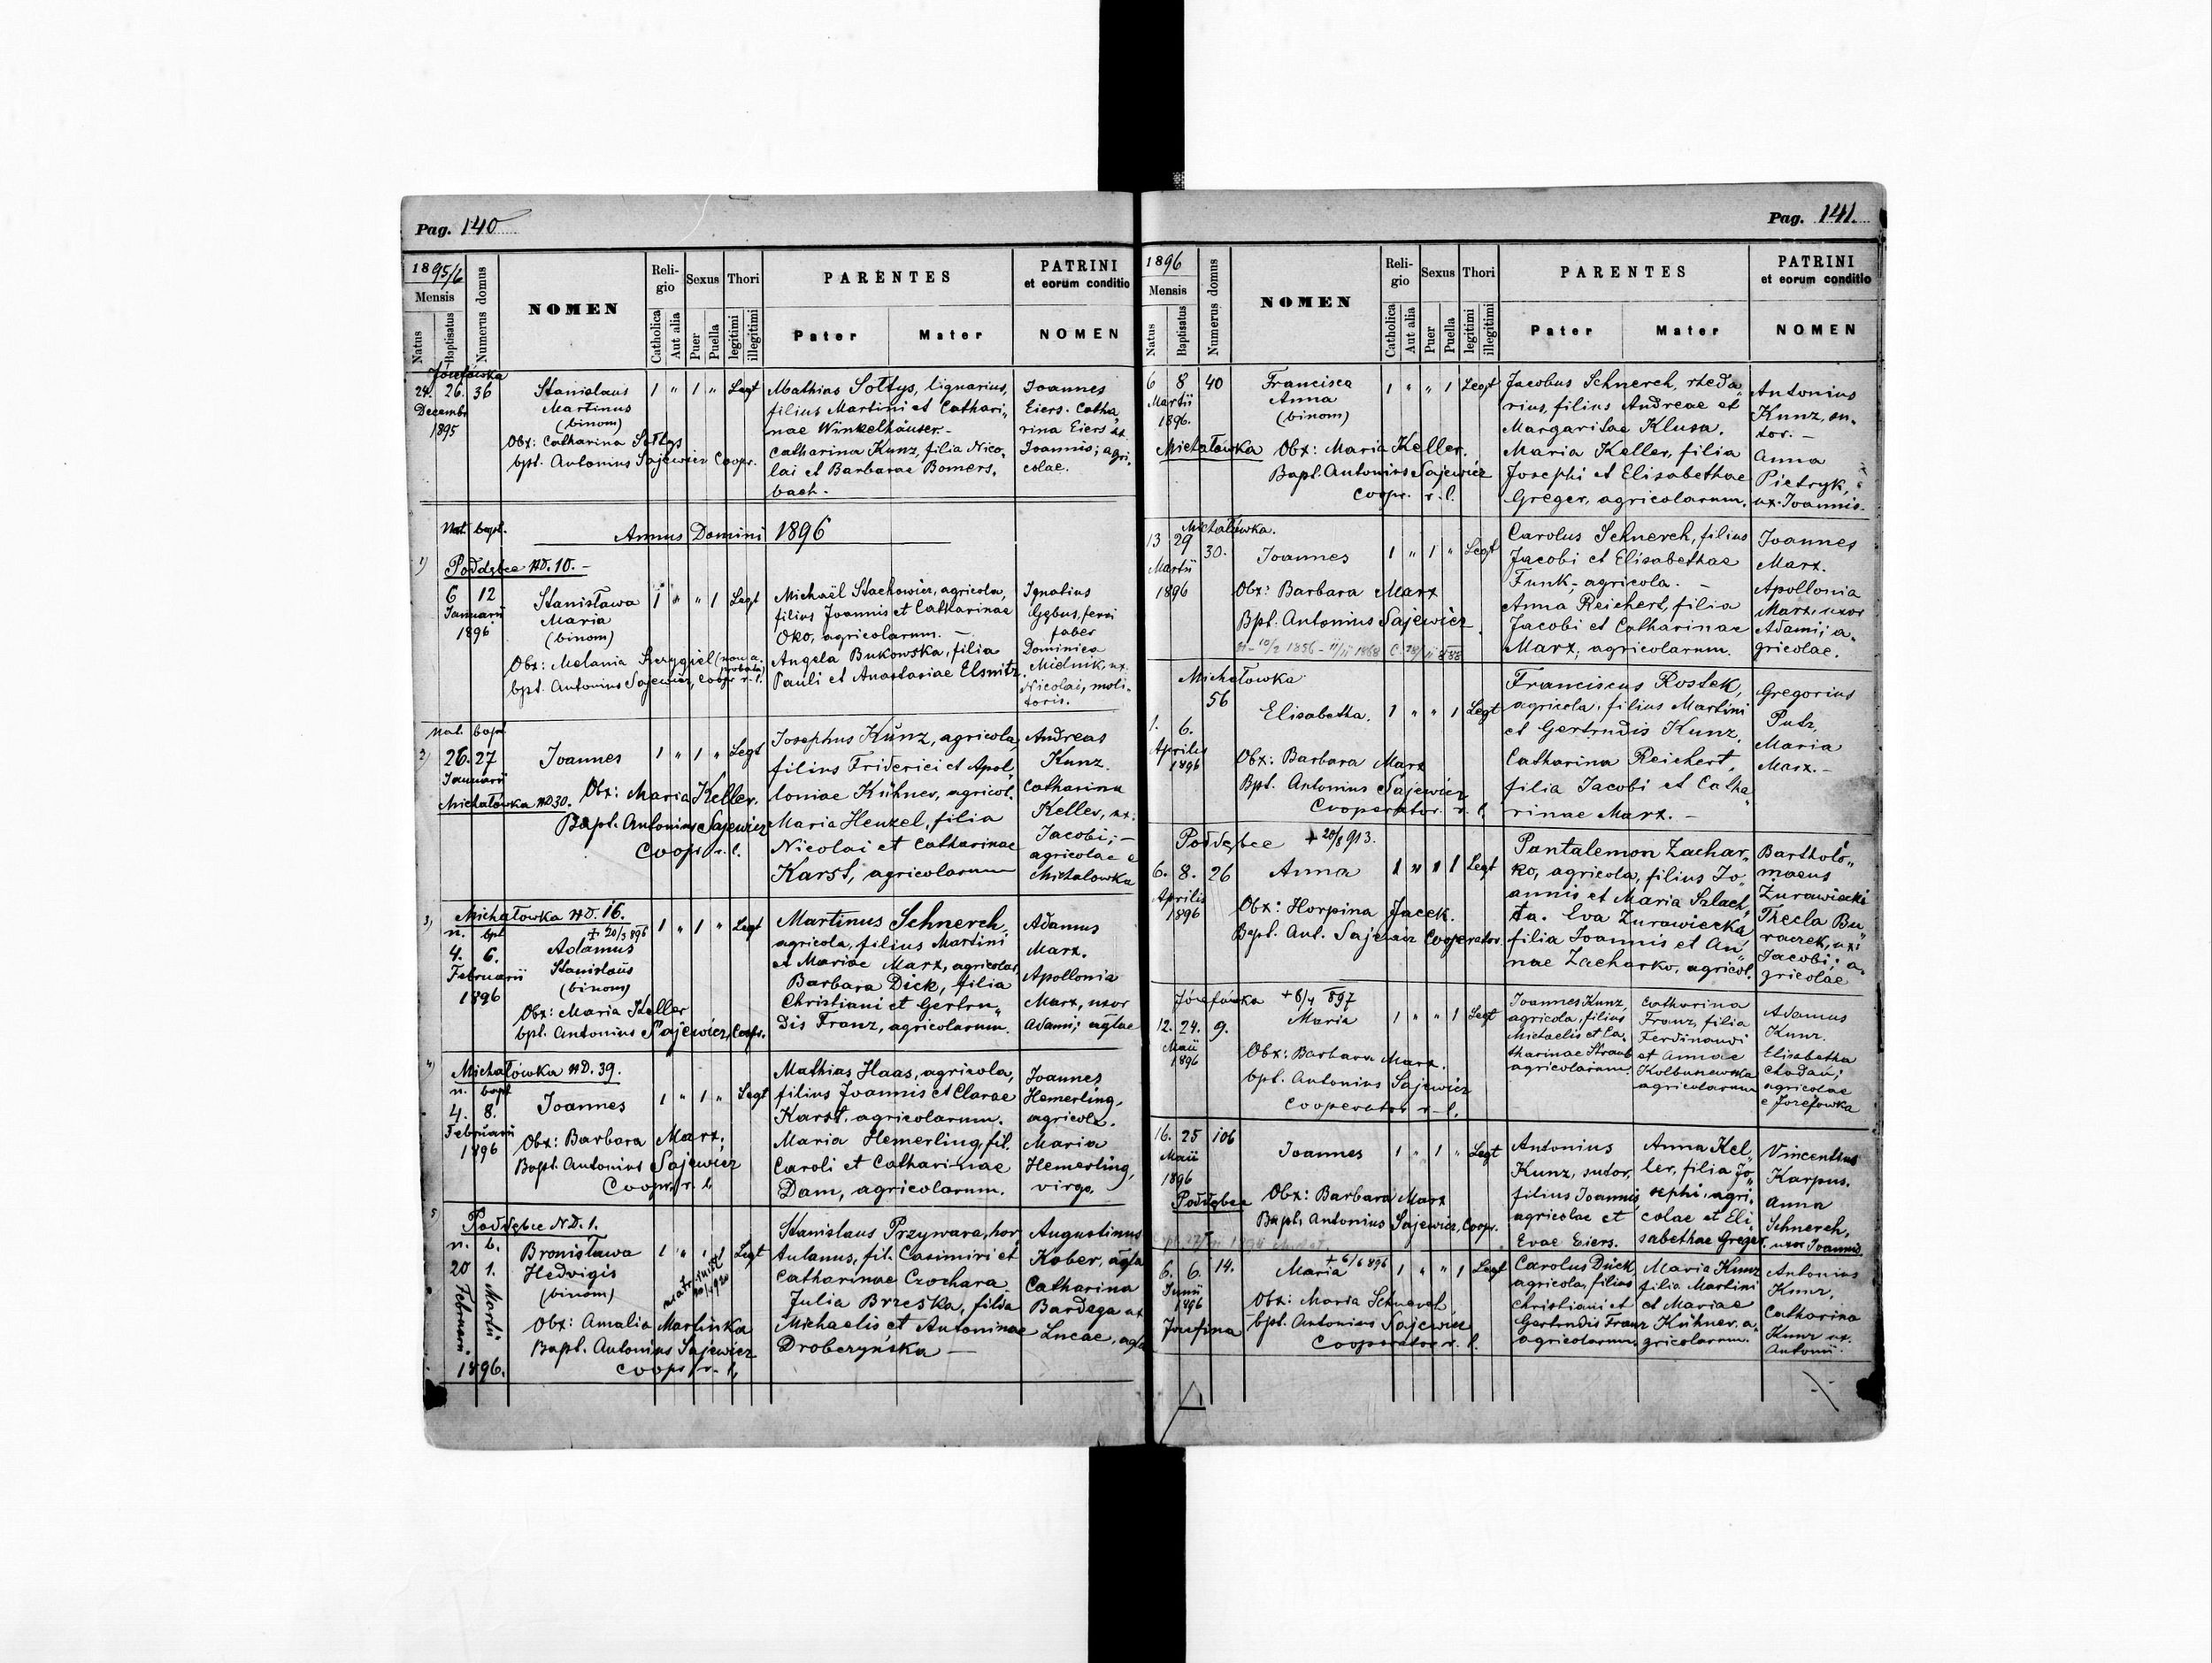 Pag. 140
1895/6
Mensis
Natus
Baptisatus
Numerus domus
NOMEN
Religio
Catholica
Aut alia
Sexus
Puer
Puella
Thori
legitimi
illegitimi
PARENTES
Pater
Mater
PATRINI
et eorum conditio
NOMEN
Józefówka
24. 26. 36
Decembr
1895
Stanislaus
Martinus
(binom)
Obx: Catharina Sołtys
bpt. Antonius Sajewicz Coopr.
1 " 1 " Legt
Mathias Sołtys, lignarius,
filius Martini et Cathari„
nae Winkelhäuser. -
Catharina Kunz, filia Nico„
lai et Barbarae Bomers„
bach.
Joannes
Eiers. Catha„
rina Eiers ux.
Joannis; agri„
colae.
Nat. bapt.
Annus Domini 1896
1) Poddębce ND. 10. -
6 12
Januarii
1896
Stanisława
Maria
(binom)
Obx: Melania Szczygieł (non a.
probata)
bpt. Antonius Sajewicz, coopr r. l.
1 " " 1 Legt
Michaël Stachowicz, agricola,
filius Joannis et Catharinae
Oko, agricolarum. -
Angela Bukowska, filia
Pauli et Anastasiae Elsnitz.
Ignatius
Gębus, ferri
faber
Dominica
Mielnik, ux.
Nicolai, moli„
toris.
nat. bapt
2) 26. 27
Januarii
Michałówka ND 30.
Joannes
Obx: Maria Keller.
Bapt. Antonius Sajewicz
Coopr r. l.
1 " 1 " Legt
Josephus Kunz, agricola,
filius Friderici et Apol„
loniae Kühner, agricol.
Maria Henzel, filia
Nicolai et Catharinae
Karst, agricolarum
Andreas
Kunz.
Catharina
Keller, ux.
Jacobi; -
agricolae e
Michalowka
3) Michałowka ND. 16.
n. bpt
4. 6.
Februarii
1896
+ 20/3 896
Adamus
Stanislaus
(binom)
Obx: Maria Keller
bpt. Antonius Sajewicz, Coopr.
1 " 1 " Legt
Martinus Schnerch,
agricola, filius Martini
et Mariae Marx, agricolar.
Barbara Dick, filia
Christiani et Gertru„
dis Franz, agricolarum.
Adamus
Marx.
Apollonia
Marx, uxor
Adami; aglae
4) Michałówka ND. 39.
n. bapt
4. 8.
Februarii
1896
Joannes
Obx: Barbara Marx;
Bapt. Antonius Sajewicz
Coopr. r. l.
1 " 1 " Legt
Mathias Haas, agricola,
filius Joannis et Clarae
Karst, agricolarum.
Maria Hemerling, fil.
Caroli et Catharinae
Dam, agricolarum.
Joannes
Hemerling,
agricola.
Maria
Hemerling,
virgo.
5) Poddębce ND. 1.
n. b.
20 1.
Februarii. Martii
1896.
Bronisława
Hedvigis
(binom)
Obx: Amalia Martinka
Bapt. Antonius Sajewicz
coopr r. l.
1 " " 1 Legt
Stanislaus Przywara, hor„
tulanus, fil. Casimiri et
Catharinae Czochara
Julia Brzeska, filia
Michaelis et Antoninae
Droberyńska -
Augustinus
Kober, agla
Catharina
Bardega ux
Lucae, agla
Pag. 141.
1896
Mensis
Natus
Baptisatus
Numerus domus
NOMEN
Religio
Catholica
Aut alia
Sexus
Puer
Puella
Thori
legitimi
illegitimi
PARENTES
Pater
Mater
PATRINI
et eorum conditio
NOMEN
6 8 40
Martii
1896.
Michałówka
Francisca
Anna
(binom)
Obx: Maria Keller.
Bapt. Antonius Sajewicz
Coopr. r. l.
1 " " 1 Legt
Jacobus Schnerch, rheda„
rius, filius Andreae et
Margaritae Klusa.
Maria Keller, filia
Josephi et Elisabethae
Greger, agricolarum.
Antonius
Kunz, su„
tor. -
Anna
Pietryk,
ux: Joannis.
Michałówka.
13 29 30.
Martii
1896
Joannes
Obx: Barbara Marx
Bpt. Antonius Sajewicz
1 " 1 " Legt
Carolus Schnerch, filius
Jacobi et Elisabethae
Funk, agricola. -
Anna Reichert, filia
Jacobi et Catharinae
Marx, agricolarum.
Joannes
Marx.
Apollonia
Marx, uxor
Adami; a„
gricolae.
Michałowka
56
1. 6.
Aprilis
1896
Elisabetha.
Obx: Barbara Marx
Bpt. Antonius Sajewicz
Cooperator. r. l.
1 " " 1 Legt
Franciscus Rostek,
agricola, filius Martini
et Gertrudis Kunz.
Catharina Reichert,
filia Jacobi et Catha„
rinae Marx. -
Gregorius
Putz,
Maria
Marx. -
Poddębce + 20/8 913.
6. 8. 26
Aprilis
1896
Anna
Obx: Horpina Jacek.
Bapt. Ant. Sajewicz Cooperator.
1 " " 1 Legt
Pantalemon Zachar„
ko, agricola, filius Jo„
annis et Maria Salach„
ta. Eva Zurawiecka
filia Joannis et An„
nae Zacharko, agricol.
Bartholo„
maeus
Żurawiecki
Thecla Bu„
raczek, ux:
Jacobi; a„
gricolae
Józefówka + 8/4 897
12. 24. 9.
Maii
1896
Maria
Obx: Barbara Marx.
bpt. Antonius Sajewicz
Cooperator r. l.
1 " " 1 Legt
Joannes Kunz,
agricola, filius
Michaelis et Ca„
tharinae Straub
agricolarum
Catharina
Franz, filia
Ferdinandi
et Annae
Kolbuszewska
agricolarum
Adamus
Kunz.
Elisabetha
Adam;
agricolae
e Józefowka
16. 25 106
Maii
1896
Poddębce
Joannes
Obx: Barbara Marx
Bapt. Antonius Sajewicz, Coopr.
1 " 1 " Legt
Antonius
Kunz, sutor,
filius Joannis,
agricolae et
Evae Eiers.
Anna Kel„
ler, filia Jo„
sephi, agri„
colae et Eli„
sabethae Greger.
Vincentius
Karpus.
Anna
Schnerch,
uxor Joannis
6. 6. 14.
Junii
1896
Josefina
+ 6/6 896
Maria
Obx: Maria Schnerch
bpt. Antonius Sajewicz
Cooperator r. l.
1 " " 1 Legt
Carolus Dück
agricola, filius
Christiani et
Gertrudis Franz
agricolarum
Maria Kunz
filia Martini
et Mariae
Kühner, a„
gricolarum.
Antonius
Kunz,
Catharina
Kunz ux.
Antonii.